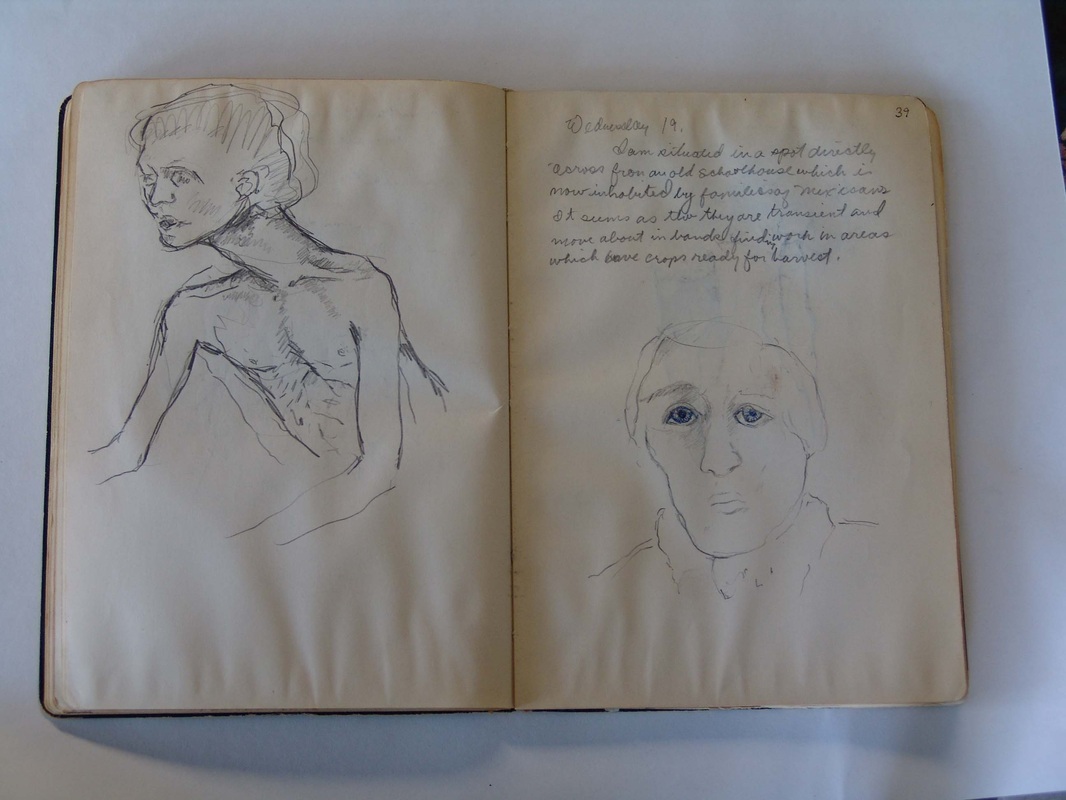 39
Wednesday 19.
I am situated in a spot directly
across from an old schoolhouse which is
now inhabited by families of Mexicans
It seems as tho they are transient and
move about in bands finding work in areas
which have crops ready for harvest.